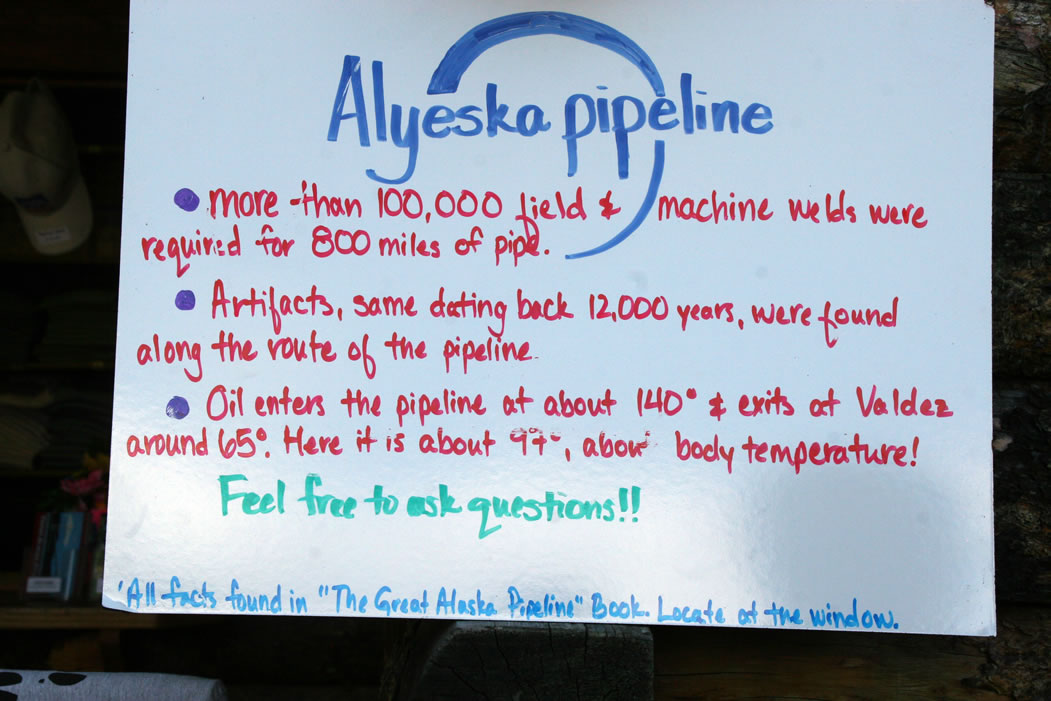 Alyeska pipeline
• more than 100,000 field & machine welds were
required for 800 miles of pipe.
• Artifacts, same dating back 12,000 years, were found
along the route of the pipeline.
• Oil enters the pipeline at about 140° & exits at Valdez
around 65°. Here it is about 97°, about body temperature!
Feel free to ask questions!!
'All facts found in "The Great Alaska Pipeline" Book. Locate at the window.